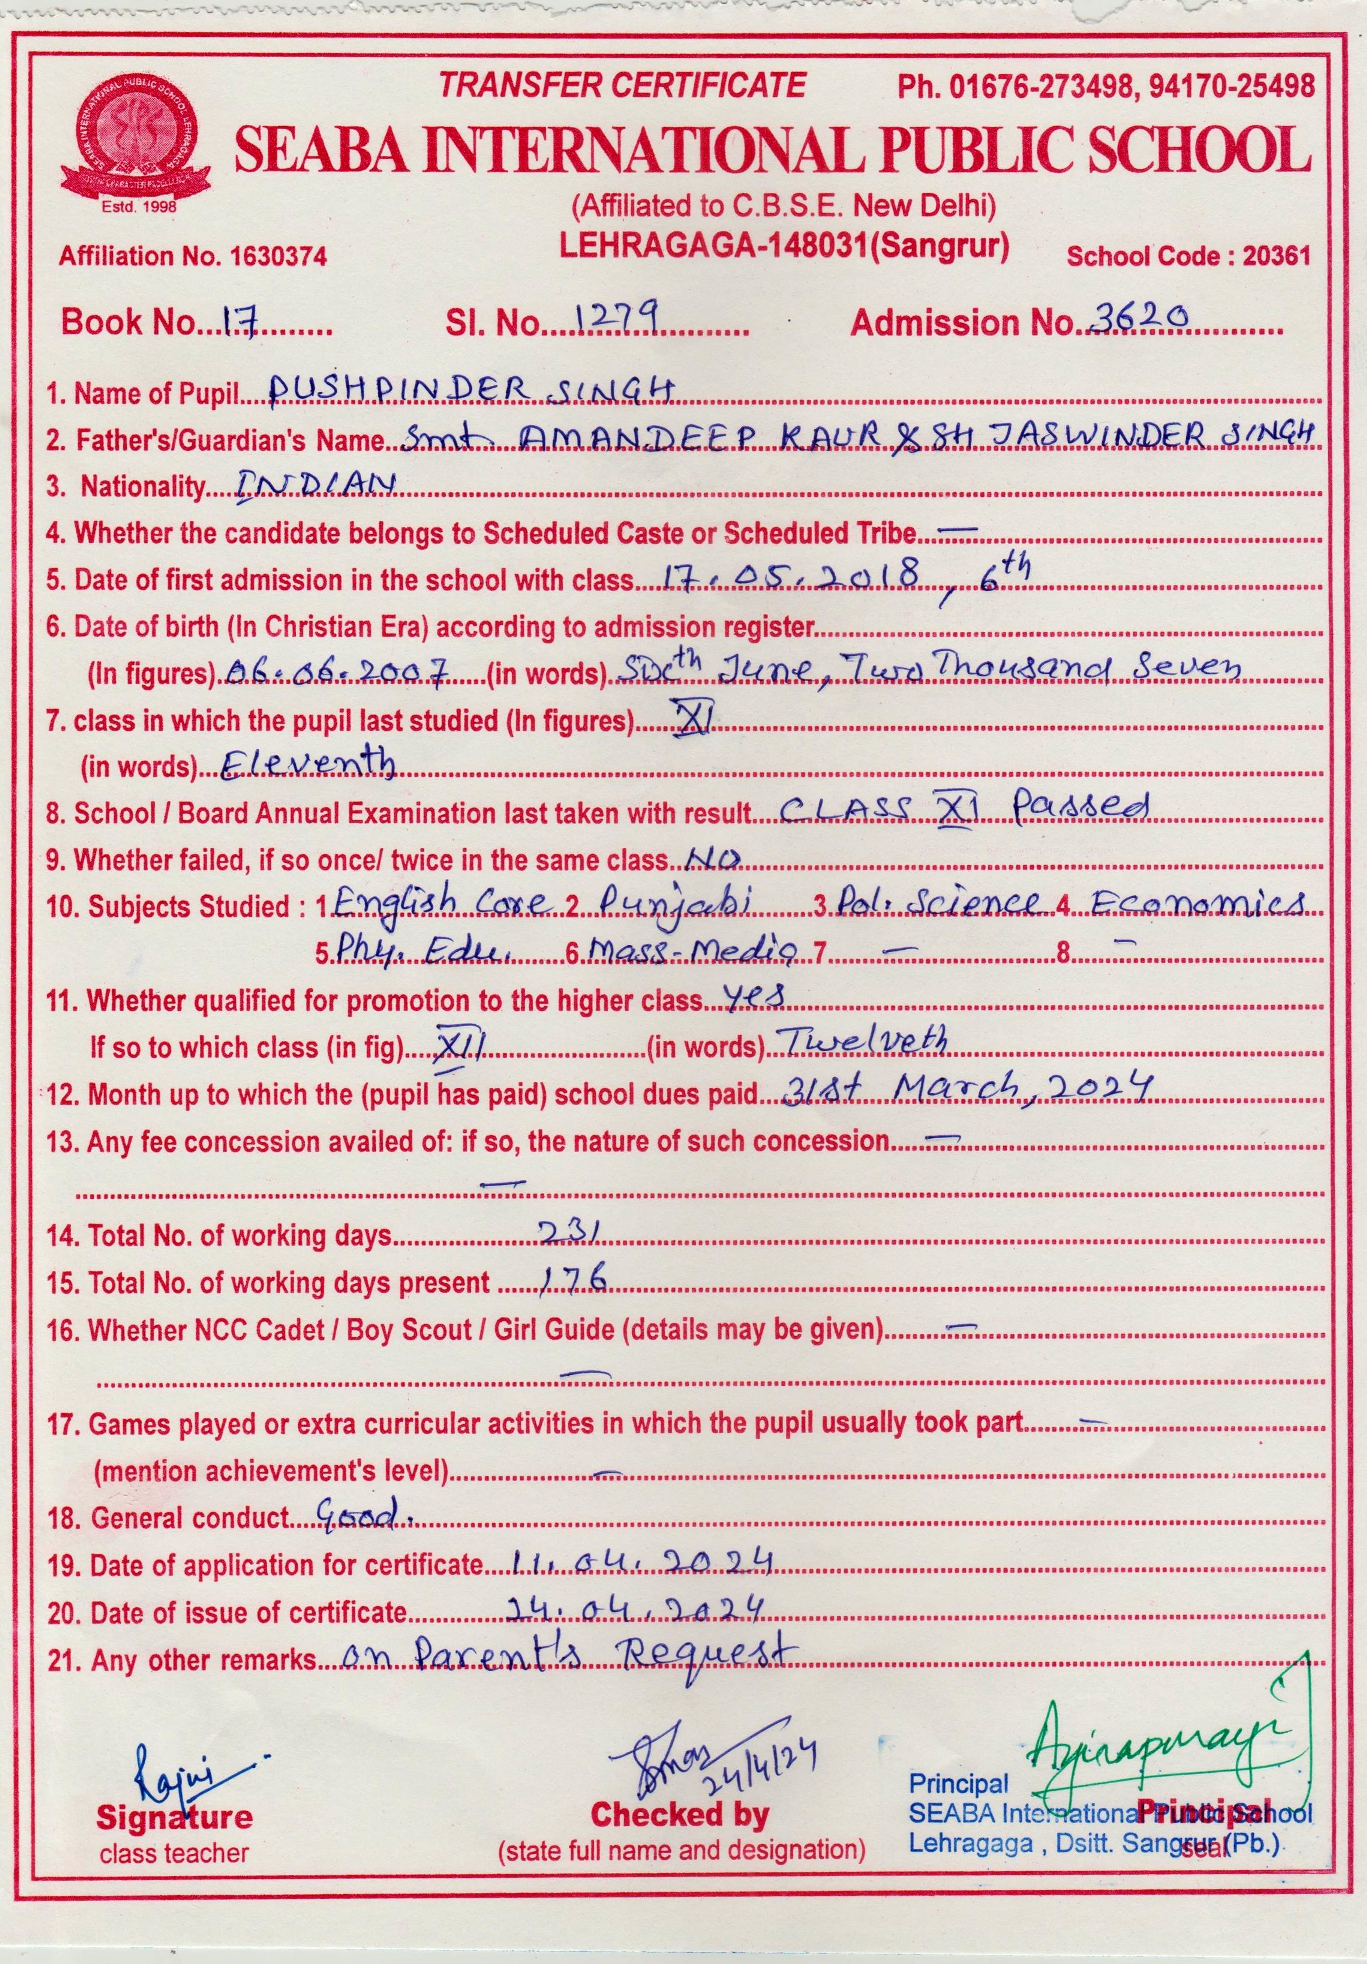 TRANSFER CERTIFICATE Ph. 01676-273498, 94170-25498
SEABA INTERNATIONAL PUBLIC SCHOOL
SEABA INTERNATIONAL PUBLIC SCHOOL LEHRAGAGA
Estd. 1998
(Affiliated to C.B.S.E. New Delhi)
Affiliation No. 1630374 LEHRAGAGA-148031(Sangrur) School Code : 20361
Book No...17.......... Sl. No....1279.......... Admission No..3620..........
1. Name of Pupil....PUSHPINDER SINGH
2. Father's/Guardian's Name..Smt. AMANDEEP KAUR & SH JASWINDER SINGH
3. Nationality....INDIAN
4. Whether the candidate belongs to Scheduled Caste or Scheduled Tribe...—
5. Date of first admission in the school with class...17.05.2018, 6th
6. Date of birth (In Christian Era) according to admission register..........
(In figures).06.06.2007.....(in words).Sixth June, Two Thousand Seven
7. class in which the pupil last studied (In figures)....XI
(in words)..Eleventh
8. School / Board Annual Examination last taken with result...CLASS XI Passed
9. Whether failed, if so once/ twice in the same class..NO
10. Subjects Studied : 1.English Core..2. Punjabi......3.Pol. Science..4. Economics
5.Phy. Edu.......6.Mass-Media..7......—..........8....—
11. Whether qualified for promotion to the higher class..Yes
If so to which class (in fig)....XII..........(in words)..Twelveth
12. Month up to which the (pupil has paid) school dues paid...31st March, 2024
13. Any fee concession availed of: if so, the nature of such concession....—
..........—..........
14. Total No. of working days..........231
15. Total No. of working days present ......176
16. Whether NCC Cadet / Boy Scout / Girl Guide (details may be given)........—
..........—..........
17. Games played or extra curricular activities in which the pupil usually took part.......—
(mention achievement's level)..........—
18. General conduct....Good.
19. Date of application for certificate....11.04.2024
20. Date of issue of certificate..........24.04.2024
21. Any other remarks...on Parent's Request
Rajni
24/4/24
Signature Checked by Principal
class teacher (state full name and designation) seal
Principal
SEABA International Public School
Lehragaga , Dsitt. Sangrur (Pb.).